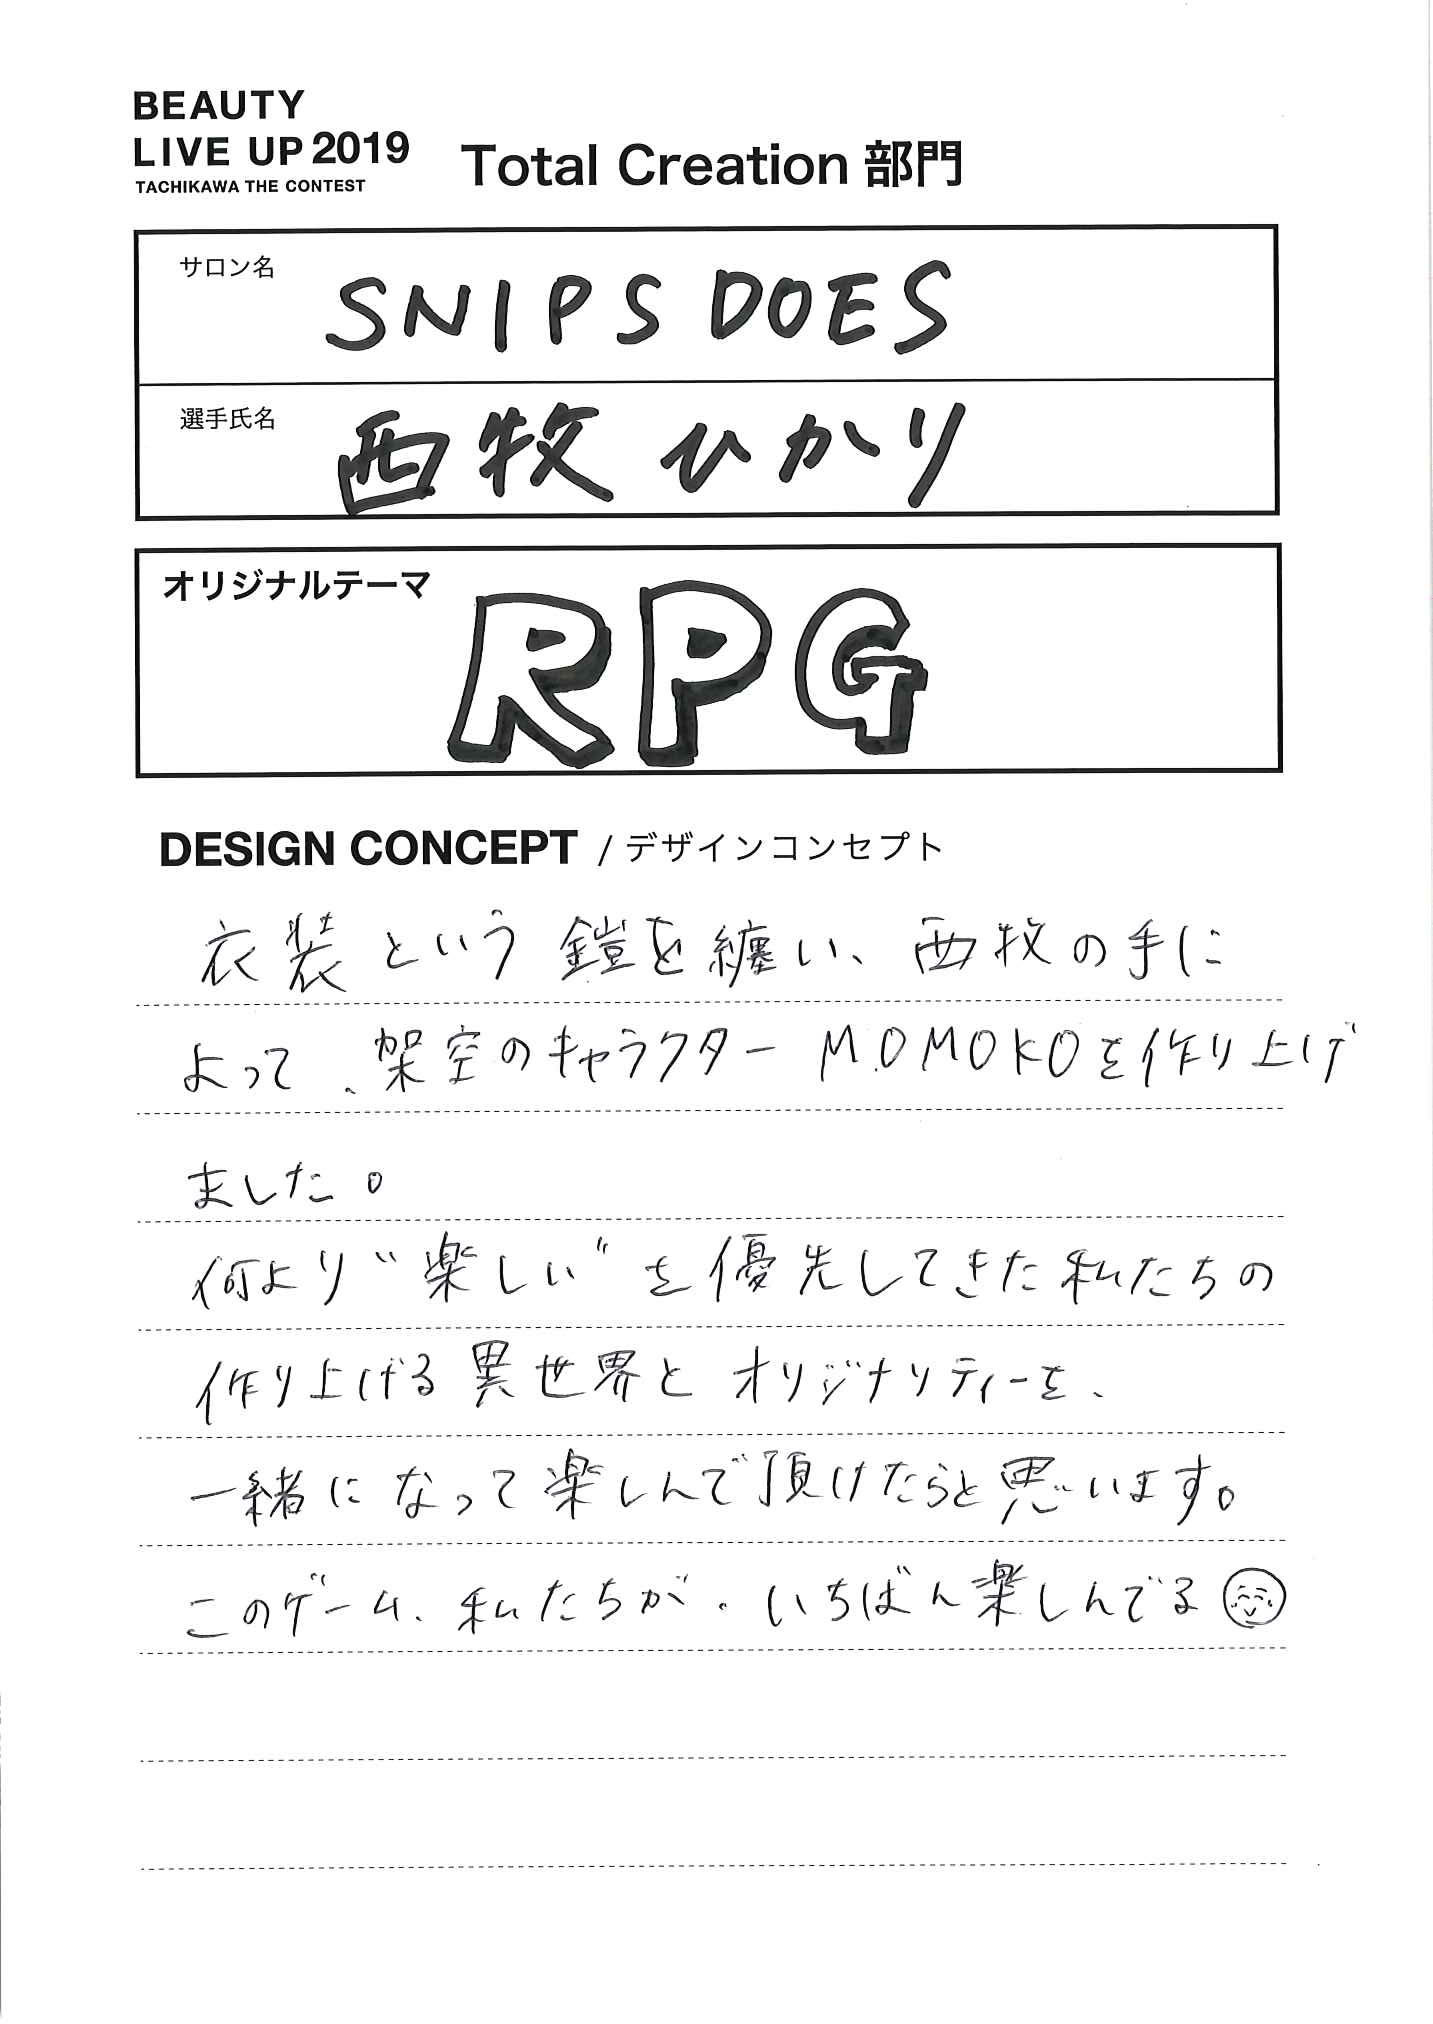 BEAUTY
LIVE UP 2019
TACHIKAWA THE CONTEST
Total Creation 部門
サロン名
SNIPS DOES
選手氏名
西牧 ひかり
オリジナルテーマ
RPG
DESIGN CONCEPT / デザインコンセプト
衣装という鎧を纏い、西牧の手に
よって、架空のキャラクター MOMOKOを作り上げ
ました。
何より“楽しい”を優先してきた私たちの
作り上げる異世界とオリジナリティーを、
一緒になって楽しんで頂けたらと思います。
このゲーム、私たちが、いちばん楽しんでる